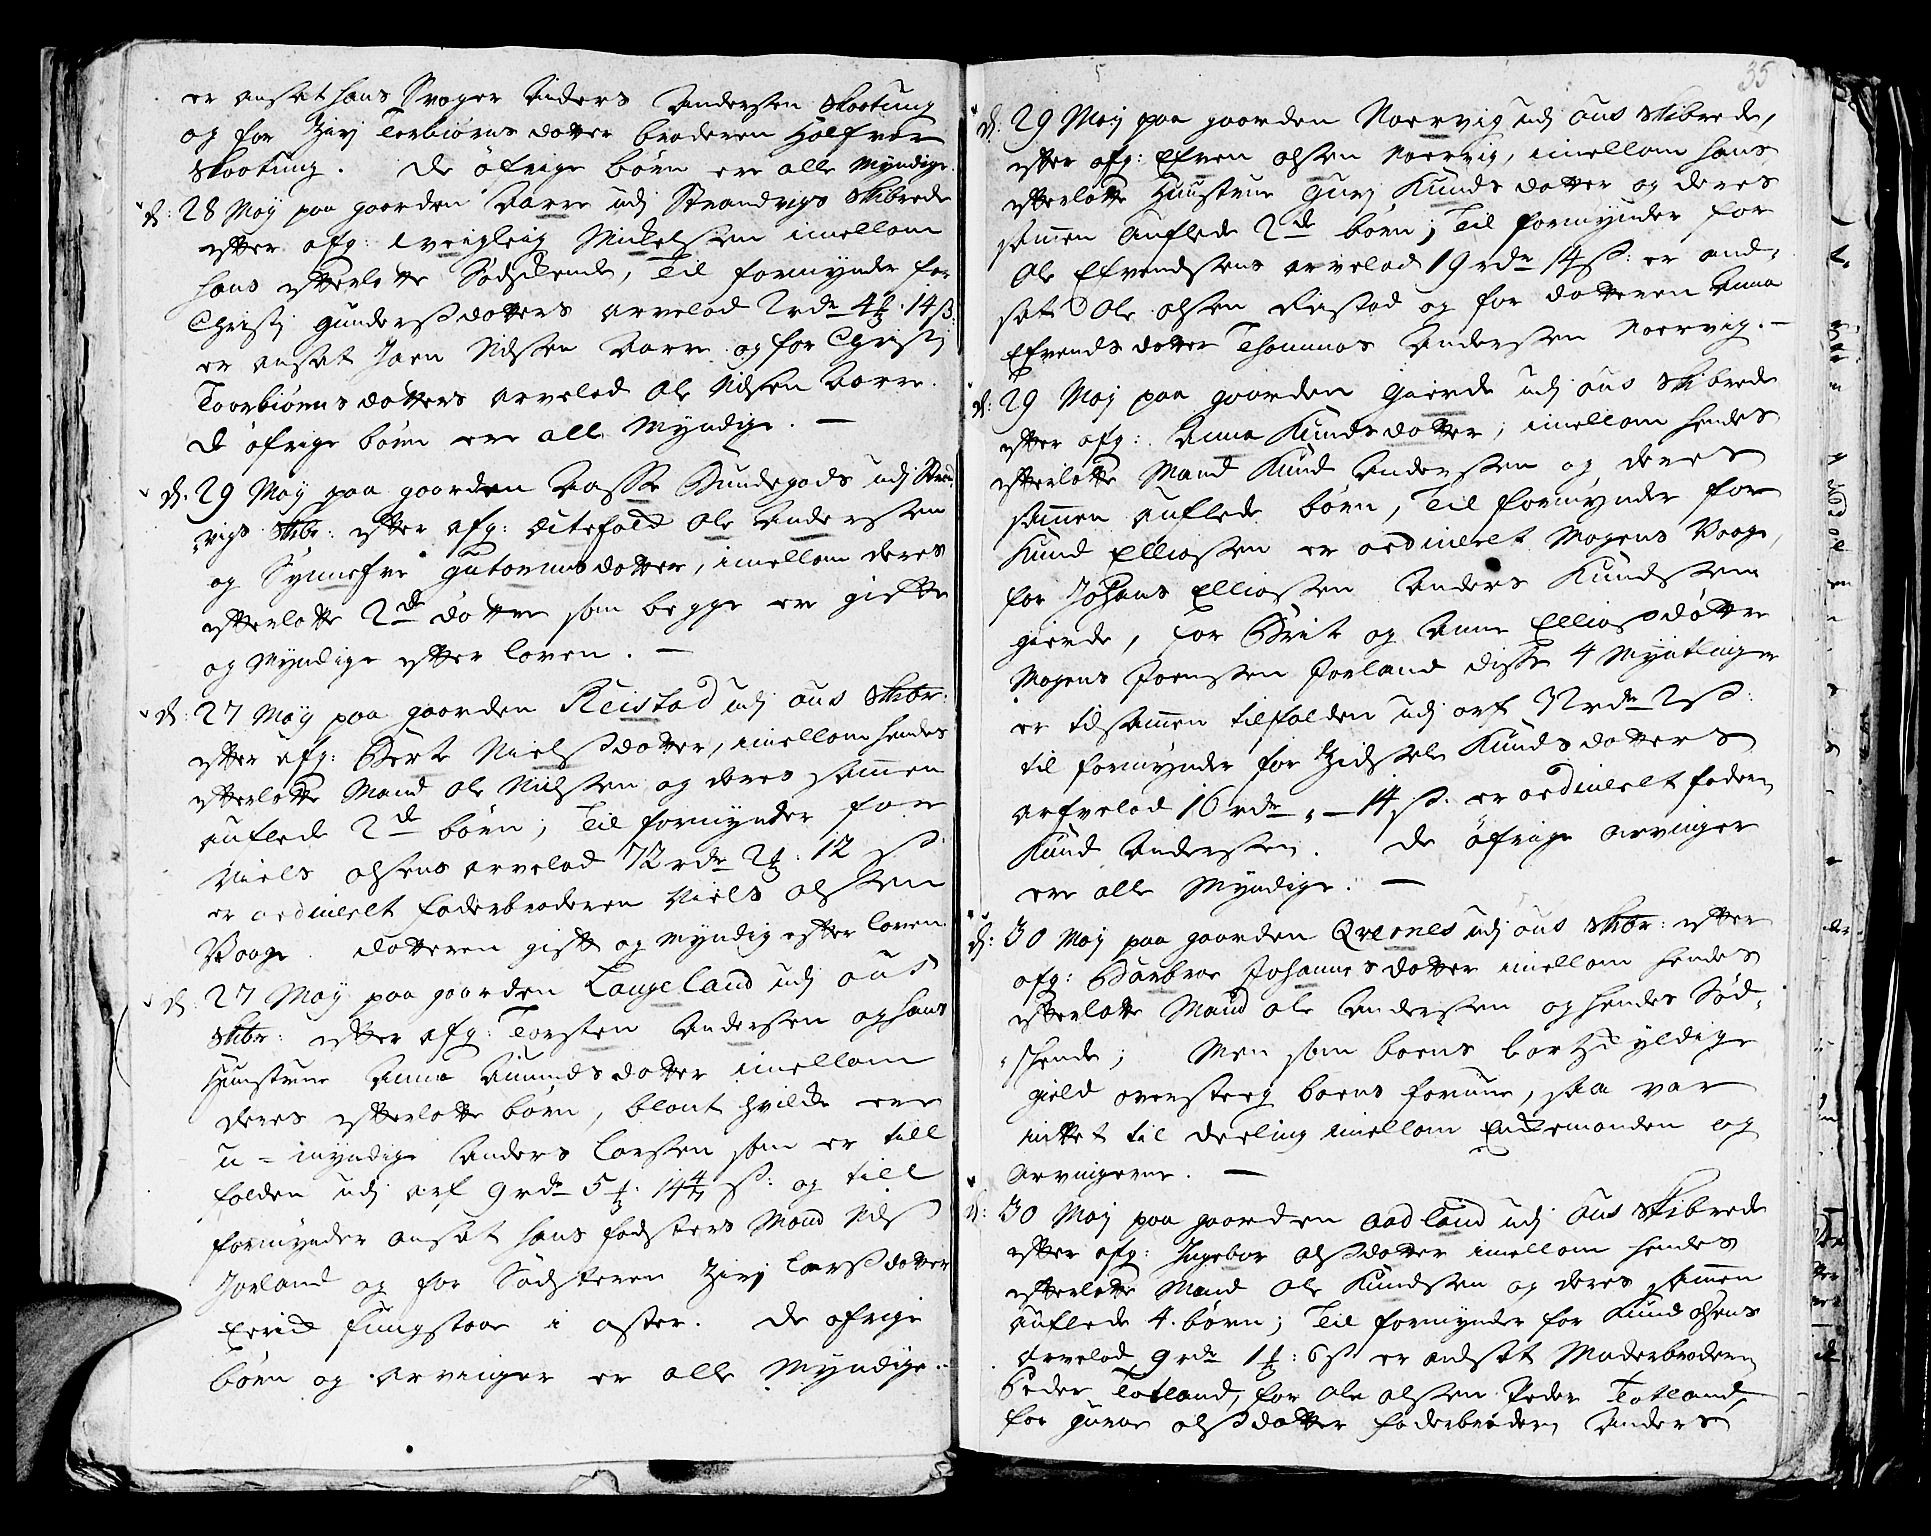 er ansat hans Svoger Anders Andersen Skootung
og for Zirj Torbiørns dotter broderen Halfvar
Skootung. De öfrige börn ere alle Myndige.
d: 28 Maÿ paa gaarden Aarre udj Strandvigs Skibrede
efter afg: Mickelsen imellem
hans efterlatte Södskende, Til formynder for
Christj Gundersdotters arvelod 2 rdr 4 ʒ: 14 ß:
er ansat Joen Nilssen Aarre og for Christj
Toorbiörnsdotters arvelod Ole Nilsen Aarre.
De öfrige börn ere alle Myndige. —
d. 29 Maÿ paa gaarden Aasse Bundegods udj Strand
vigs Skibr: efter afg: Ole Andersen
og Synnefve Guttormsdotter, imellem deres
efterlatte 2de döttre som begge ere gifte
og Myndige efter loven. —
d: 27 Maÿ paa gaarden Reistad udj Ous Skibr:
efter afg: Berte Nielsdotter, imellem hendes
efterlatte Mand Ole Nielssen og deres sammen
auflede 2de börn; Til formynder for
Niels Olsens arvelod 72 rdr 2 ʒ: 12 ß.
er ordineret faderbroderen Niels Olssen
Vaage. dotteren gift og myndig efter loven.
d: 27 Maÿ paa gaarden Langeland udj Ous
Skibr: efter afg: Torsten Andersen og hans
Huustrue Anna Amundsdotter imellem
deres efterlatte börn, blant hvilcke ere
u=myndige Anders Larsen som er till
falden udj arf 9 rdr 5 ʒ: 14 4/7 ß: og till
formynder ansat hans fadsters Mand Nils
Jorland og for Södsteren Zirj Larsdotter
Erick fungstaae i oster. De öfrige
börn og arvinger er alle Myndige.
35
d: 29 Maÿ paa gaarden Noervig udj Ous Skibrede,
efter afg: Efven Olsen Noervig, imellem hans
efterlatte Huustrue Gurj Knudsdotter og deres
sammen Auflede 2de börn; Til formynder for
Ole Efvendsens arvelod 19 rdr 14 ß: er and=
sat Ole Olsen Reistad og for dotteren Anna
Efvendsdotter Thommas Andersen Noervig. —
d: 29 Maÿ paa gaarden Gierde udj Ous Skibrede
efter afg: Anna Knudsdotter, imellem hendes
efterlatte Mand Knud Andersen og deres
sammen auflede börn, Til formynder for
Knud Elliassen er ordineret Mogens Vaage,
for Johans Elliassen Anders Knudssen
gierde, for Brite og Anne Elliasdöttre
Mogens Joenssen Jorland disse 4 Myndlinger
er tilsammen tilfalden udj arf 32 rdr 2 ß:
til formynder for Zidsele Knudsdotters
arfvelod 16 rdr „ — 14 ß. er ordineret faderen
Knud Andersen. De öfrige arvinger
ere alle Myndige. —
d: 30 Maÿ paa gaarden Qvernes udj Ous Skibr: efter
afg: Barbroe Johannesdotter imellem hendes
efterlatte Mand Ole Andersen og hendes Söd=
skende; Men som boens bortskyldige
gield oversteeg boens formue, saa var
intet til deeling imellem Enckemanden og
arvingerne. —
d: 30 Maÿ paa gaarden Aadland udj Ous Skibrede
efter afg: Ingebor Olsdotter imellem hendes
efterlatte Mand Ole Knudssen og deres sammen
auflede 4. börn; Til formynder for Knud Olsens
arvelod 9 rdr 1 ʒ: 6 ß er andsat Moderbroderen
Peder Totland, for Ole Olsen Peder Totland,
for Guroe Olsdotter faderbroderen Anders